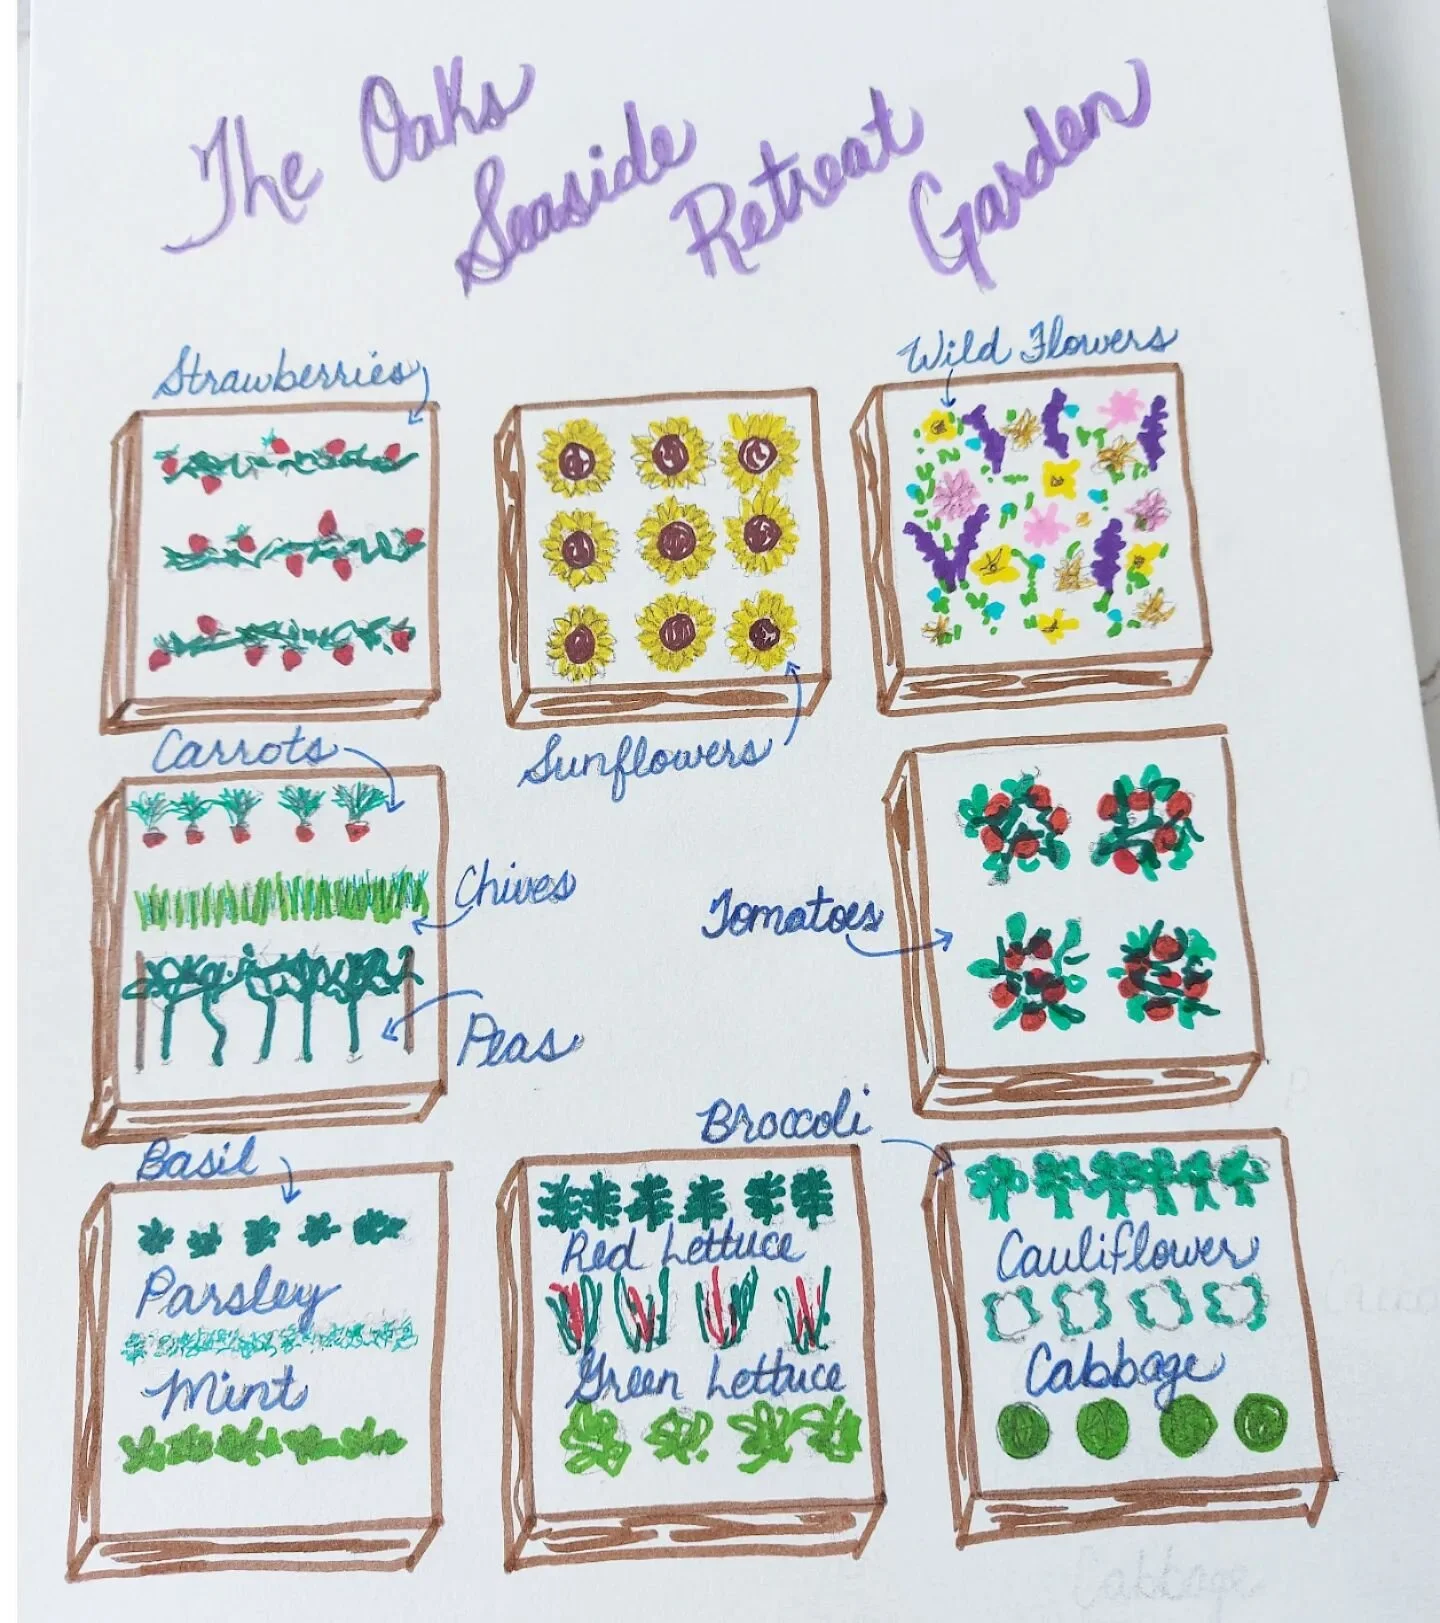 The Oaks
Seaside
Retreat
Garden
Strawberries
Wild Flowers
Sunflowers
Carrots
Chives
Peas
Tomatoes
Basil
Parsley
Mint
Red Lettuce
Green Lettuce
Broccoli
Cauliflower
Cabbage
Cabbage